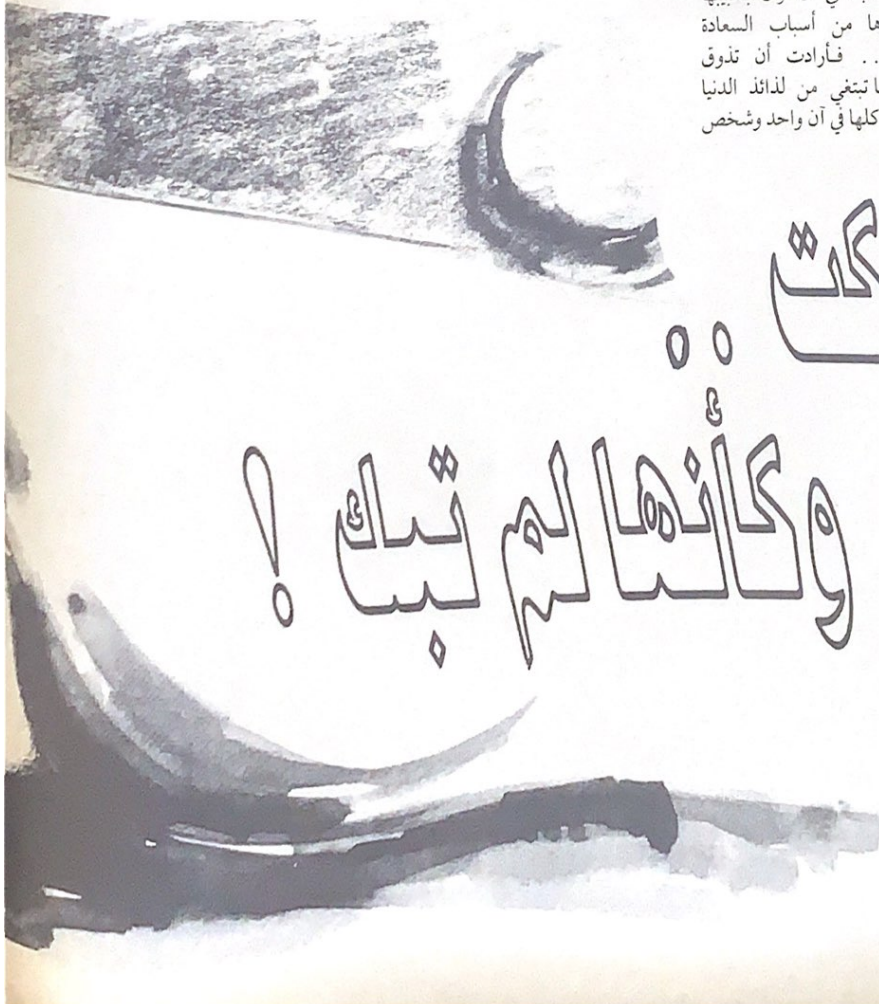 ها من أسباب السعادة
.. فأرادت أن تذوق
ا تبتغي من لذائذ الدنيا
كلها في آن واحد وشخص
كت ..
وكأنها لم تبك !